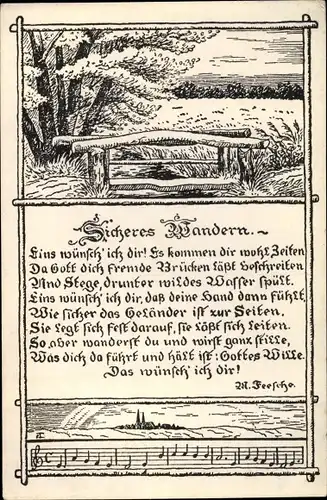 Sicheres Wandern. ~
Eins wünsch' ich dir! Es kommen dir wohl Zeiten
Da Gott dich fremde Brücken läßt beschreiten
Und Stege, drunter wildes Wasser spült.
Eins wünsch' ich dir, daß deine Hand dann fühlt,
Wie sicher das Geländer ist zur Seiten.
Sie legt sich fest darauf, sie läßt sich leiten.
So aber wanderst du und wirst ganz stille,
Was dich da führt und hält ist: Gottes Wille.
Das wünsch' ich dir!
M. Feesche.